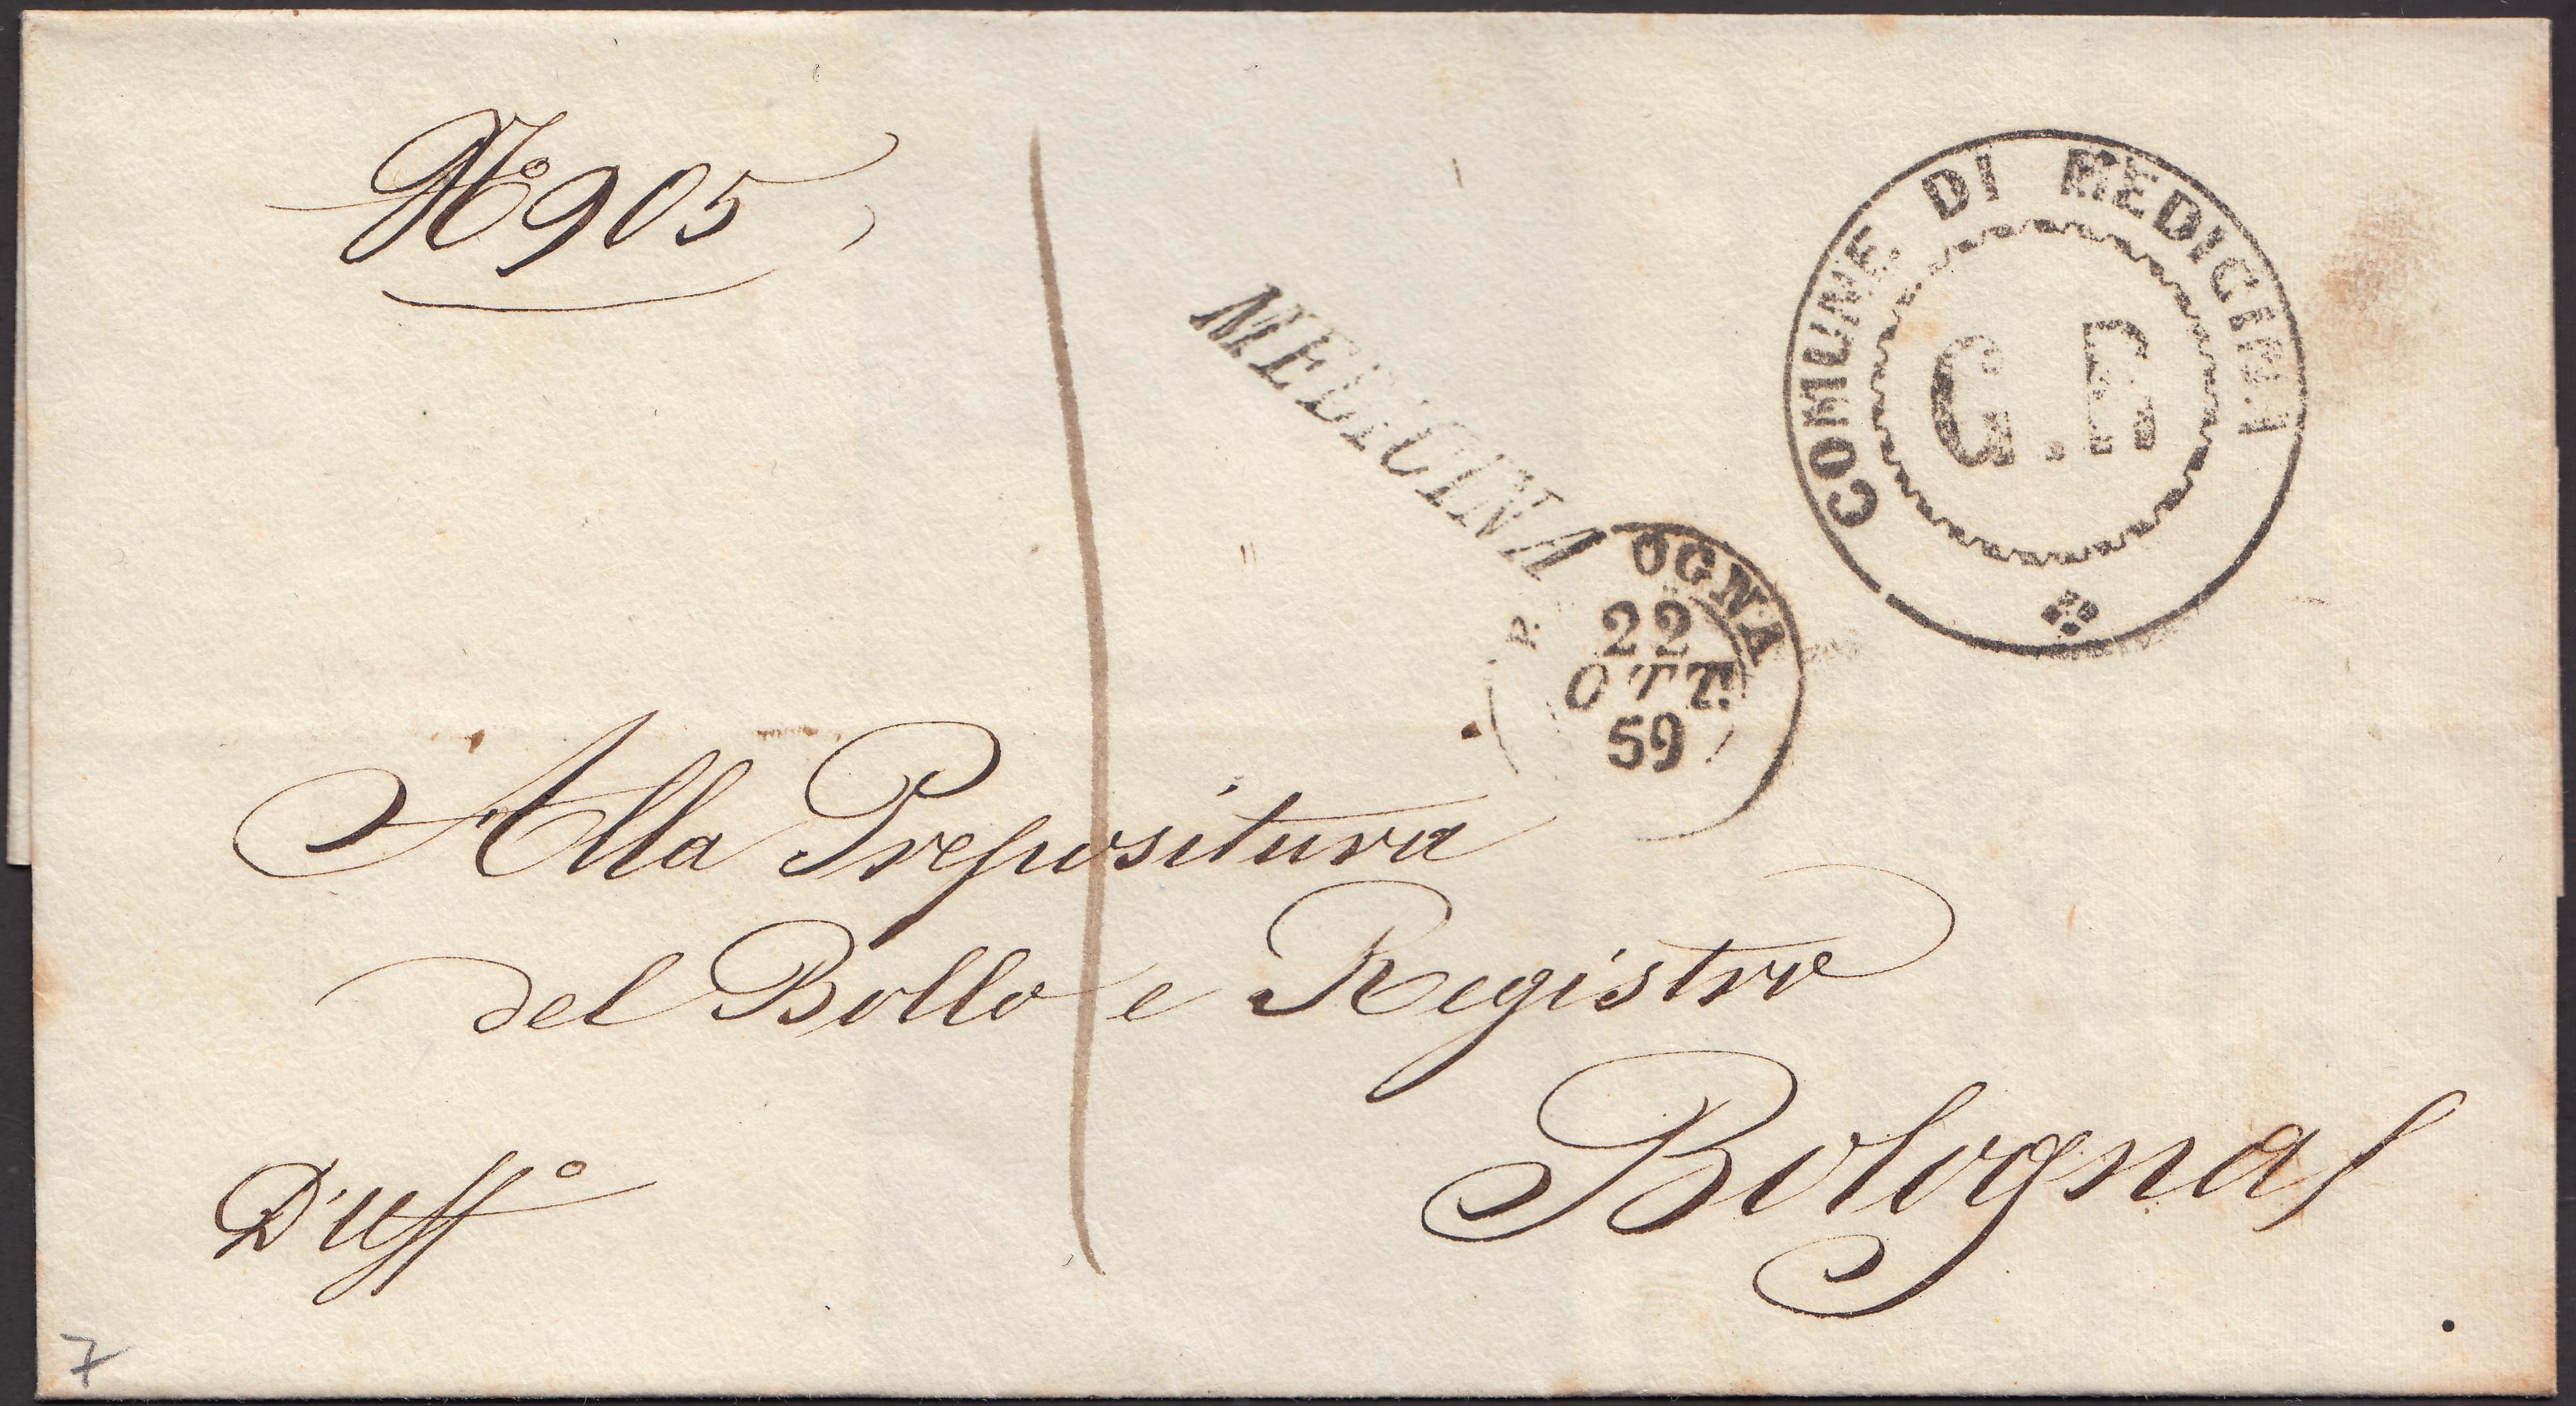 Nº 905
COMUNE DI MEDICINA
G.R
MEDICINA
OGNA
22
OTT.
59
Alla Prepositura
del Bollo e Registro
Bologna
D'Uffº
7